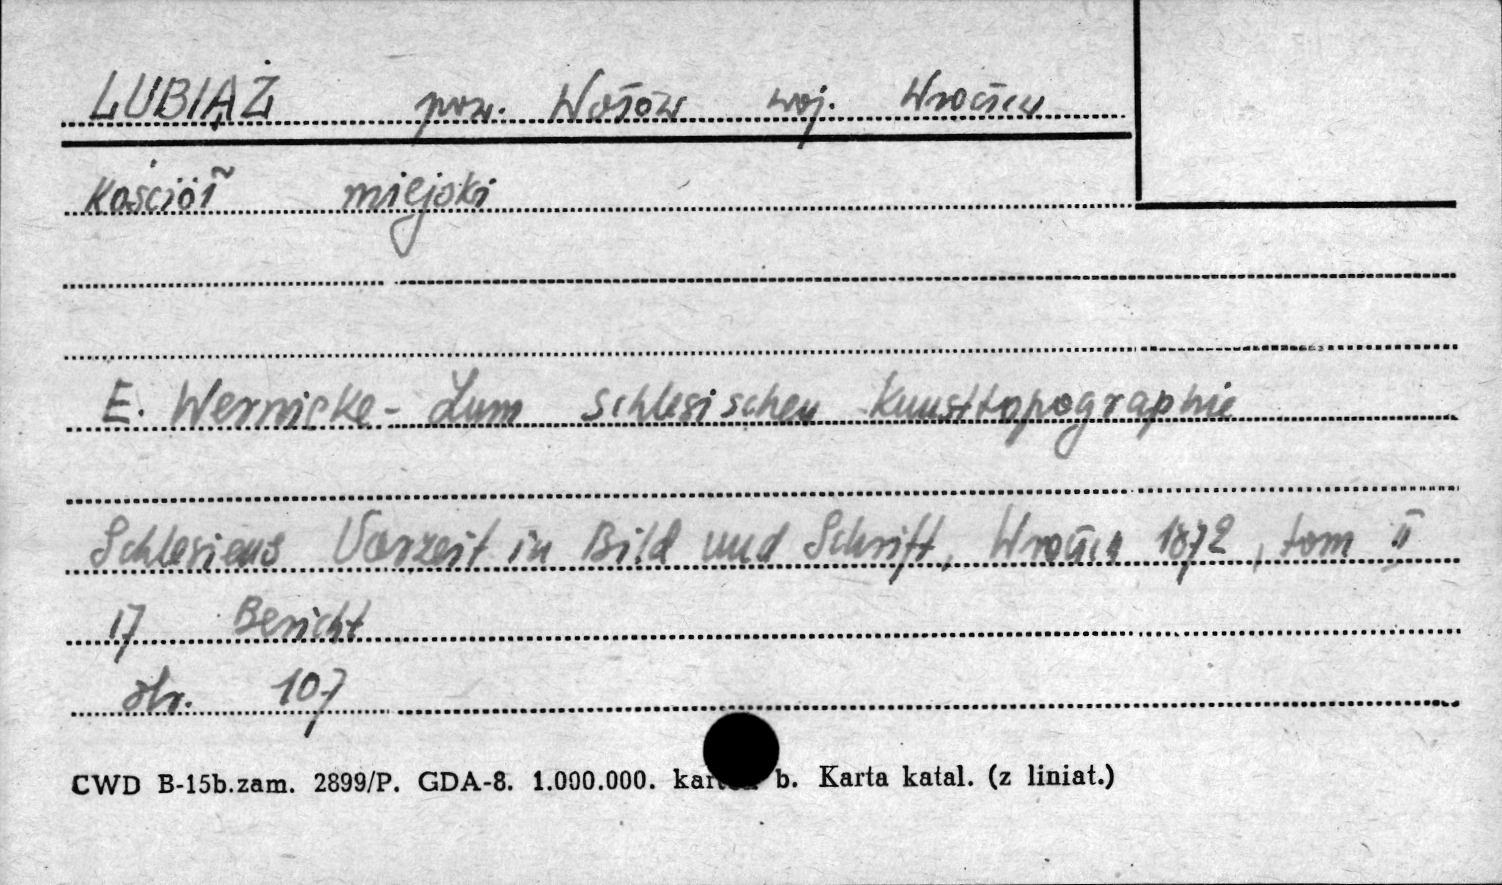 LUBIĄŻ pow. Wołów woj. Wrocław
Kościół miejski
E. Wernicke - Zum Schlesischen Kunsttopographie
Schlesiens Vorzeit in Bild und Schrift, Wrocław 1872, tom II
17 Bericht
str. 107
CWD B-15b.zam. 2899/P. GDA-8. 1.000.000. b. Karta katal. (z liniat.)